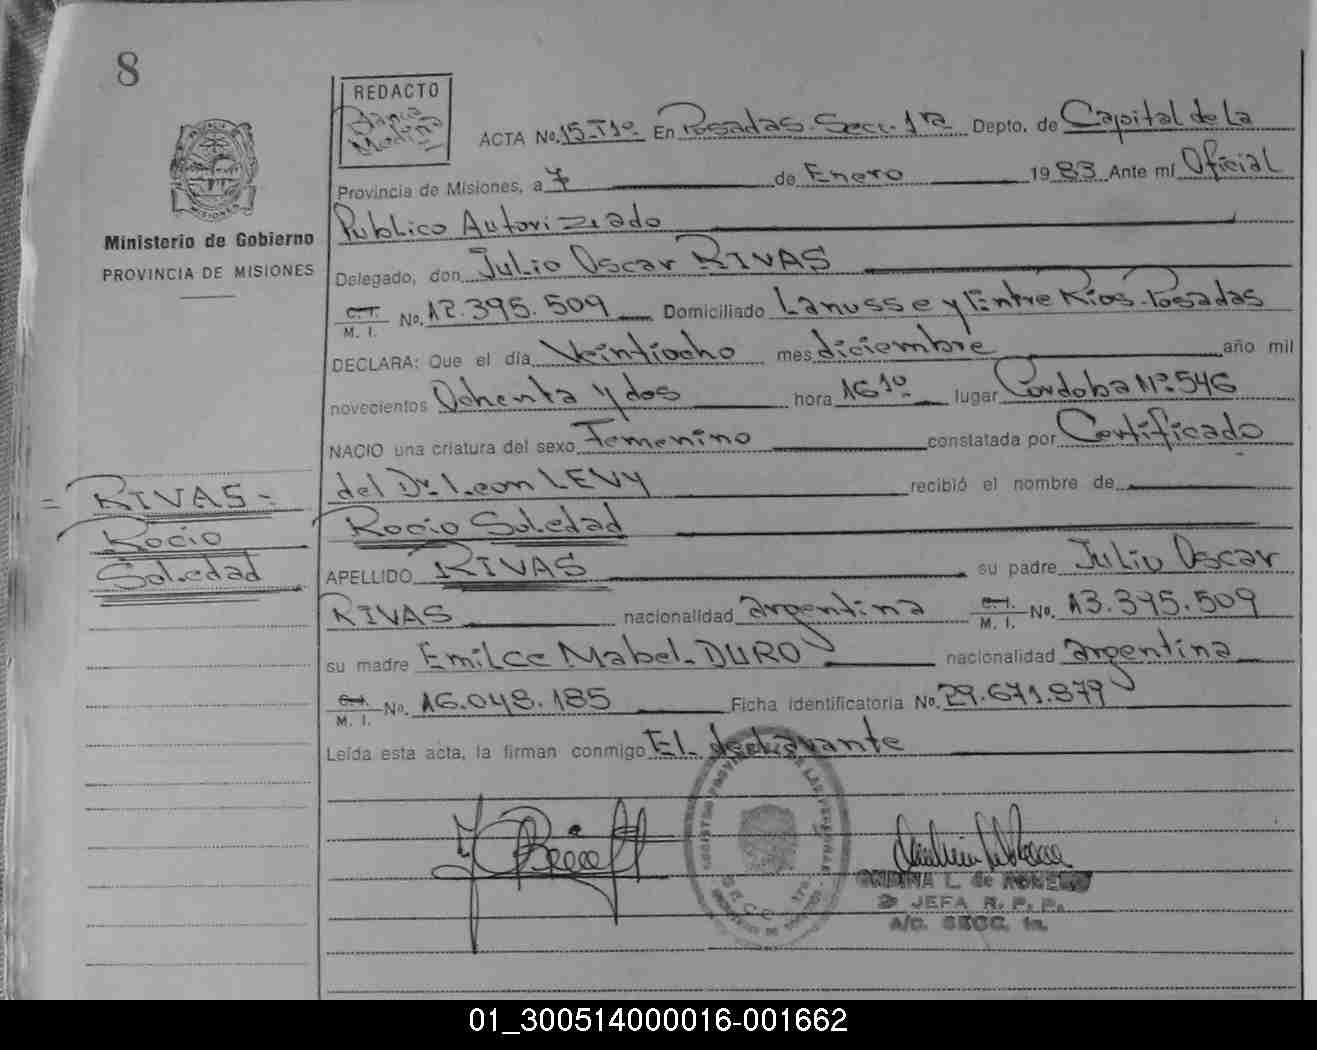 8
REDACTO
María
ACTA No. 15-T1º En Posadas. Secc. 1ra Depto. de Capital de la
Provincia de Misiones, a 7 de Enero 1983 Ante mí Oficial
Publico Autorizado
MISIONES
Ministerio de Gobierno
PROVINCIA DE MISIONES
Delegado, don Julio Oscar RIVAS
C.I. M. I. No. 12.395.509 Domiciliado Lanusse y Entre Rios-Posadas
DECLARA: Que el día Veintiocho mes diciembre año mil
novecientos Ochenta y dos hora 16 1º lugar Cordoba Nº 546
NACIO una criatura del sexo Femenino constatada por Certificado
del Dr. Leon LEVY recibió el nombre de
= RIVAS -
Rocio
Soledad
Rocio Soledad
APELLIDO RIVAS su padre Julio Oscar
RIVAS nacionalidad argentina C.I. M. I. No. 13.395.509
su madre Emilce Mabel- DURO nacionalidad argentina
C.I. M. I. No. 16.048.185 Ficha Identificatoria No. 29.671.879
Leída esta acta, la firman conmigo El declarante
REGISTRO PROVINCIAL DE LAS PERSONAS
SECC. 1ra.
L. de ROMERO
JEFA R. P. P.
A/C. SECC. 1a.
01_300514000016-001662